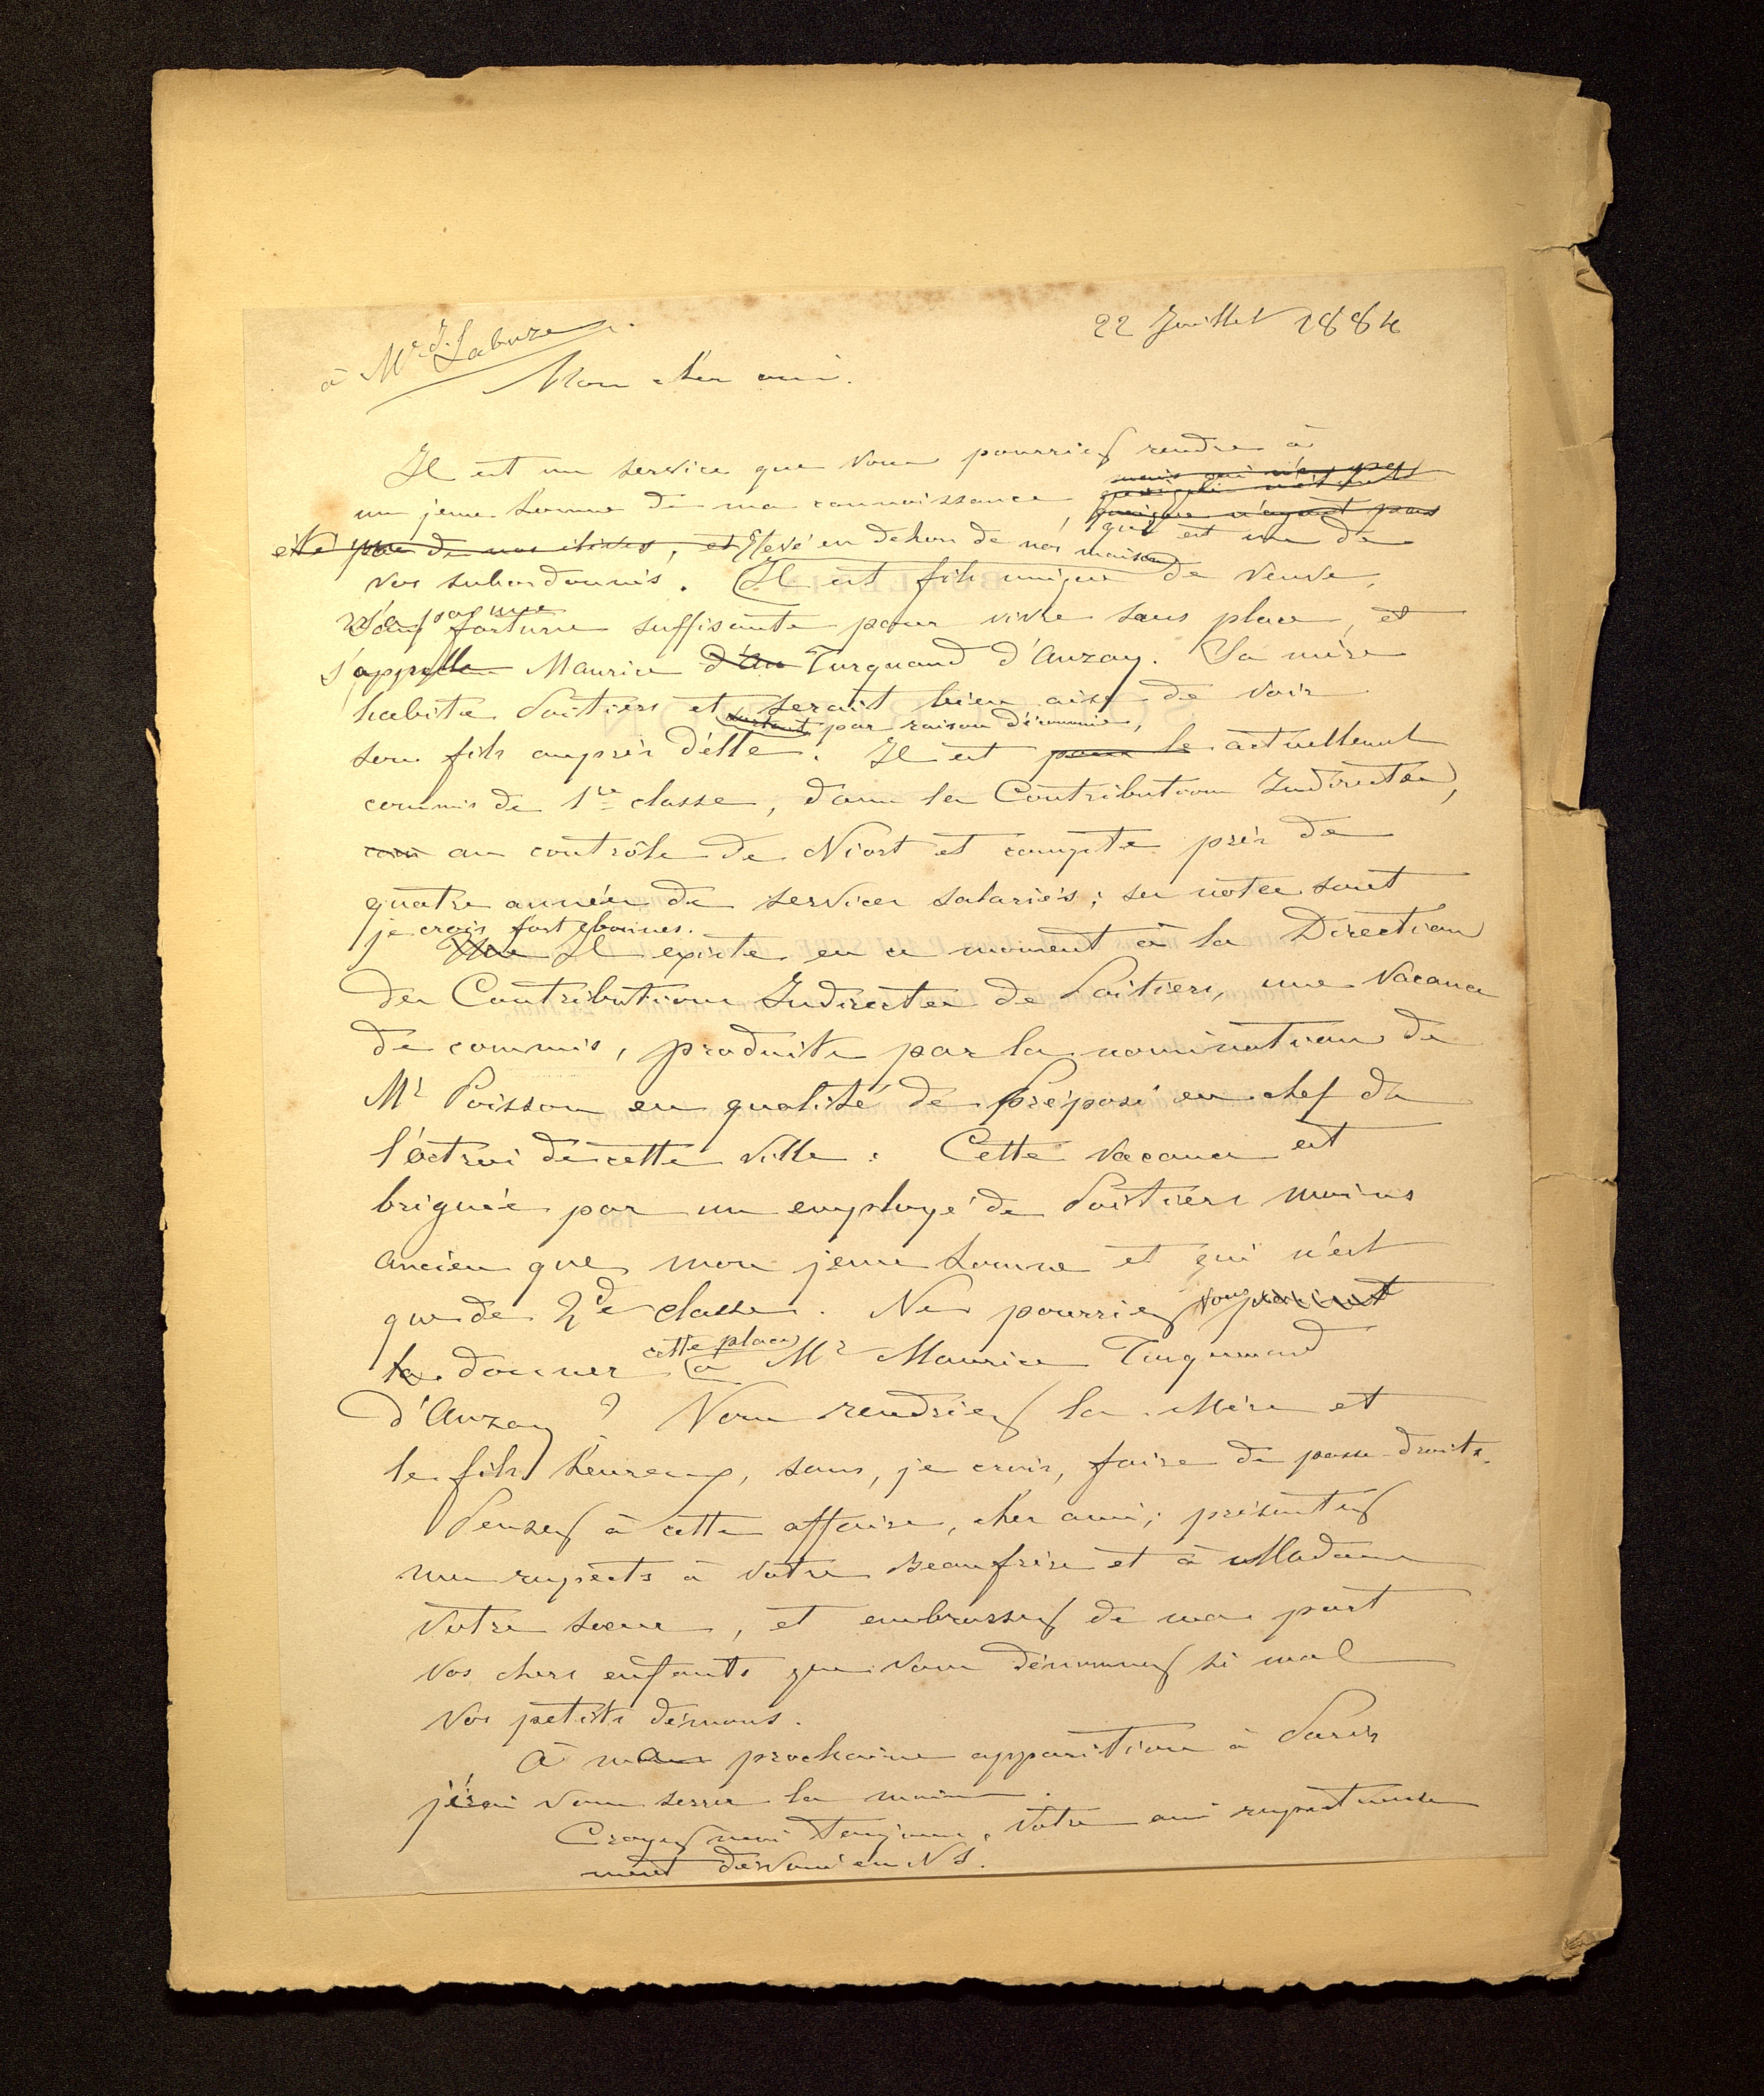 22 Juillet 1884
à Mr J. Labuze
Mon cher ami.
Il est un service que vous pourriez rendre à
mais qui n'a pas
un jeune homme de ma connaissance, quoique n'ayant pas
été un de nos élèves, et Elevé en dehors de nos maisons qui est un de
vos subordonnés. Il est fils unique de veuve,
n'a pas une
sans fortune suffisante pour vivre sans place, et
s'appelle Maurice d'Au Turquand d'Auzay. Sa mère
habite Poitiers et serait bien aise de voir
surtout par raison d'économie,
son fils auprès d'elle. Il est pour le actuellement
commis de 1re classe, dans les Contributions Indirectes,
au contrôle de Niort et compte près de
quatre années de services salariés; ses notes sont
je crois fort bonnes.
Une Il existe en ce moment à la Direction
des Contributions Indirectes de Poitiers, une vacance
de commis, produite par la nomination de
Mr Poisson en qualité de Préposé en chef de
l'octroi de cette ville. Cette vacance est
briguée par un employé de Poitiers moins
ancien que mon jeune homme et qui n'est
que de 2de classe. Ne pourriez vous
cette place
la donner à Mr Maurice Turquand
d'Auzay? Vous rendriez la mère et
le fils heureux, sans, je crois, faire de passe-droits.
Pensez à cette affaire, cher ami; présentez
mes respects à votre Beaufrère et à Madame
votre soeur, et embrassez de ma part
vos chers enfants que vous dénommez si mal
vos petits démons.
A ma prochaine apparition à Paris
j'irai vous serrer la main.
Croyez moi toujours, votre ami respectueuse
ment dévoué en NS.